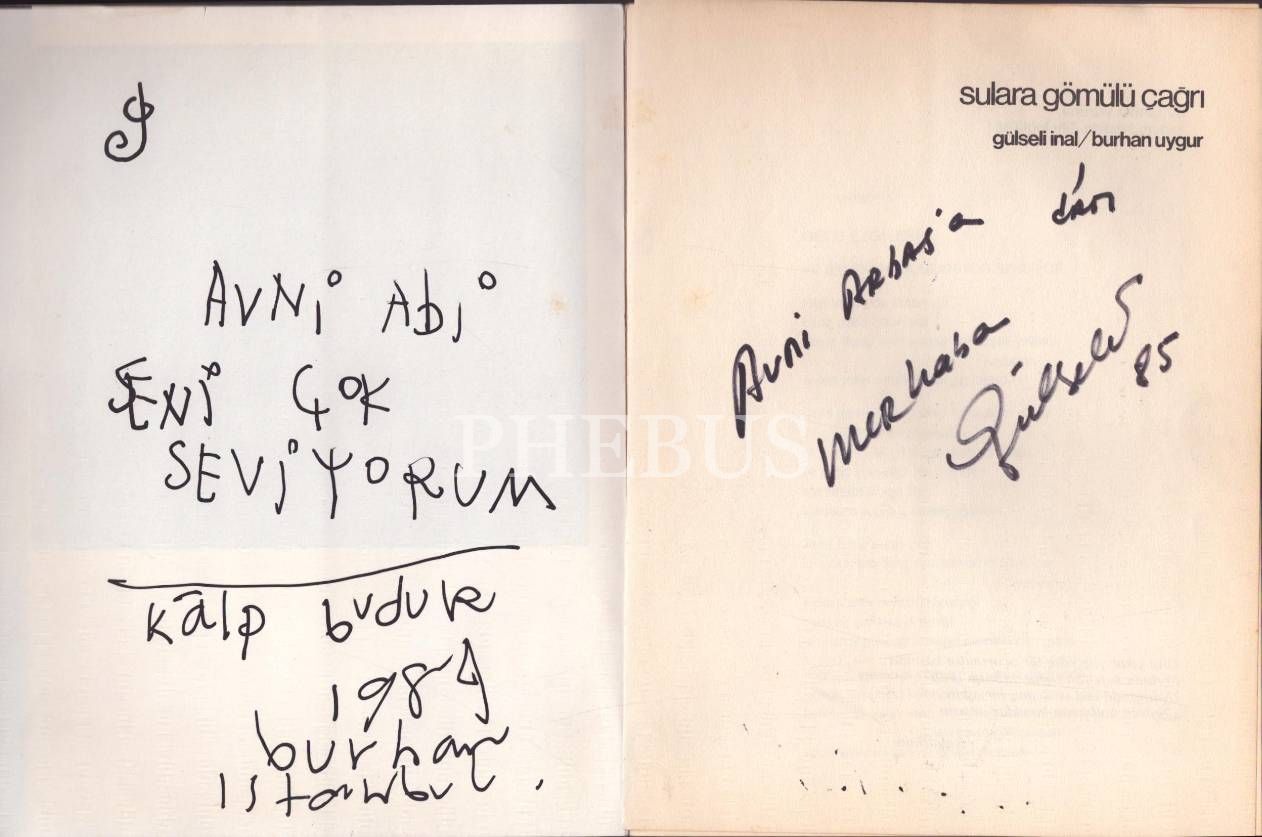 AVNİ ABİ
SENİ ÇOK
SEVİYORUM
kālp buduk
1989
burhan
istanbul.
sulara gömülü çağrı
gülseli inal/burhan uygur
Avni Arbaş'a
merhaba
Gülseli
85
PHEBUS